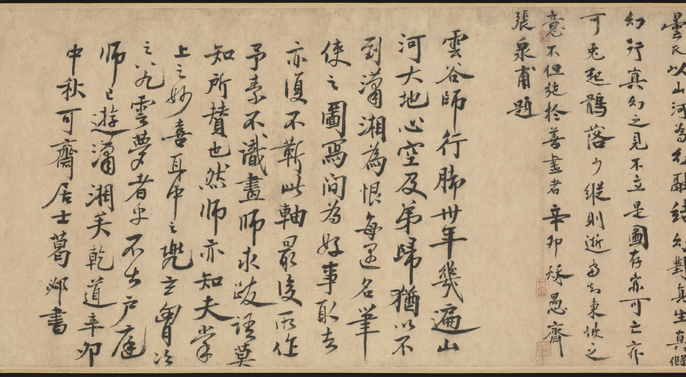 曇氏以山河為見翳結幻對真生真假
幻行真幻之見不立是圖存亦可亡亦
可兔起鶻落少縱則逝當知東坡之
意不但施於善畫者辛卯秋愚齋
張泉甫題
雲谷師行脚卅年幾遍山
河大地心空及第歸猶以不
到瀟湘為恨每遇名筆
使之圖焉間為好事取去
亦復不靳此軸最後所作
予素不識畫師求跋語莫
知所贊也然師亦知夫掌
上之妙喜耳中之兜玄胷次
之八九雲夢者乎不出戶庭
師已遊瀟湘矣乾道辛卯
中秋可齋居士葛郯書